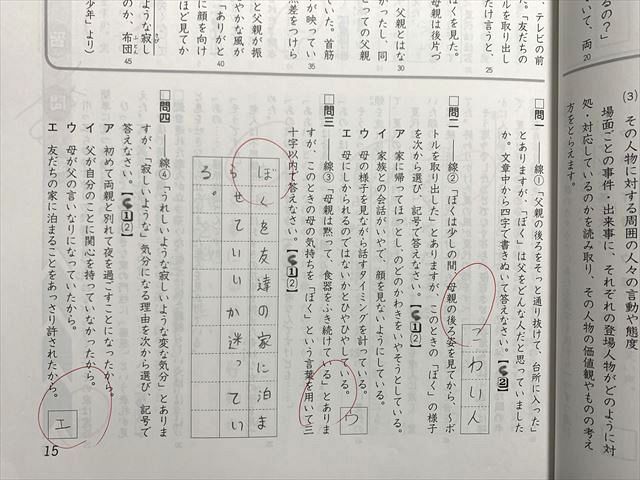 (3) その人物に対する周囲の人々の言動や態度
場面ごとの事件・出来事に、それぞれの登場人物がどのように対
処・対応しているのかを読み取り、その人物の価値観やものの考え
方をとらえます。
るの？」
いて、両
20
テレビの前
「友だちの
トルを取り出し
だけ言うと、
25
ぼくを見た。
母親は後片づ
父親とはな
かったし、同
っての父親
30
いた。首筋
が映ってい
35
無差をつけら
と父親が振
やかな風が
「ありがと
40
に顔を向け
ほど見てか
な寂しい
のか、布団
45
少年」より）
□問一 ――線①「父親の後ろをそっと通り抜けて、台所に入った」
とありますが、「ぼく」は父をどんな人だと思っていました
か。文章中から四字で書きぬいて答えなさい。【②】
こわい人
□問二 ――線②「ぼくは少しの間、母親の後ろ姿を見てから、〜ボ
トルを取り出した」とありますが、このときの「ぼく」の様子
を次から選び、記号で答えなさい。【①②】
ア 家に帰ってほっとし、のどのかわきをいやそうとしている。
イ 家族との会話がいやで、顔を見ないようにしている。
ウ 母の様子を見ながら話すタイミングを計っている。
エ 母にしかられるのではないかとひやひやしている。
ウ
□問三 ――線③「母親は黙って、食器をふき続けている」とありま
すが、このときの母の気持ちを「ぼく」という言葉を用いて三
十字以内で答えなさい。【①②】
ぼくを友達の家に泊ま
らせていいか迷ってい
る。
□問四 ――線④「うれしいような寂しいような変な気分」とありま
すが、「寂しいような」気分になる理由を次から選び、記号で
答えなさい。【①②】
ア 初めて両親と別れて夜を過ごすことになったから。
イ 父が自分のことに関心を持っていなかったから。
ウ 母が父の言いなりになっていたから。
エ 友だちの家に泊まることをあっさり許されたから。
エ
15